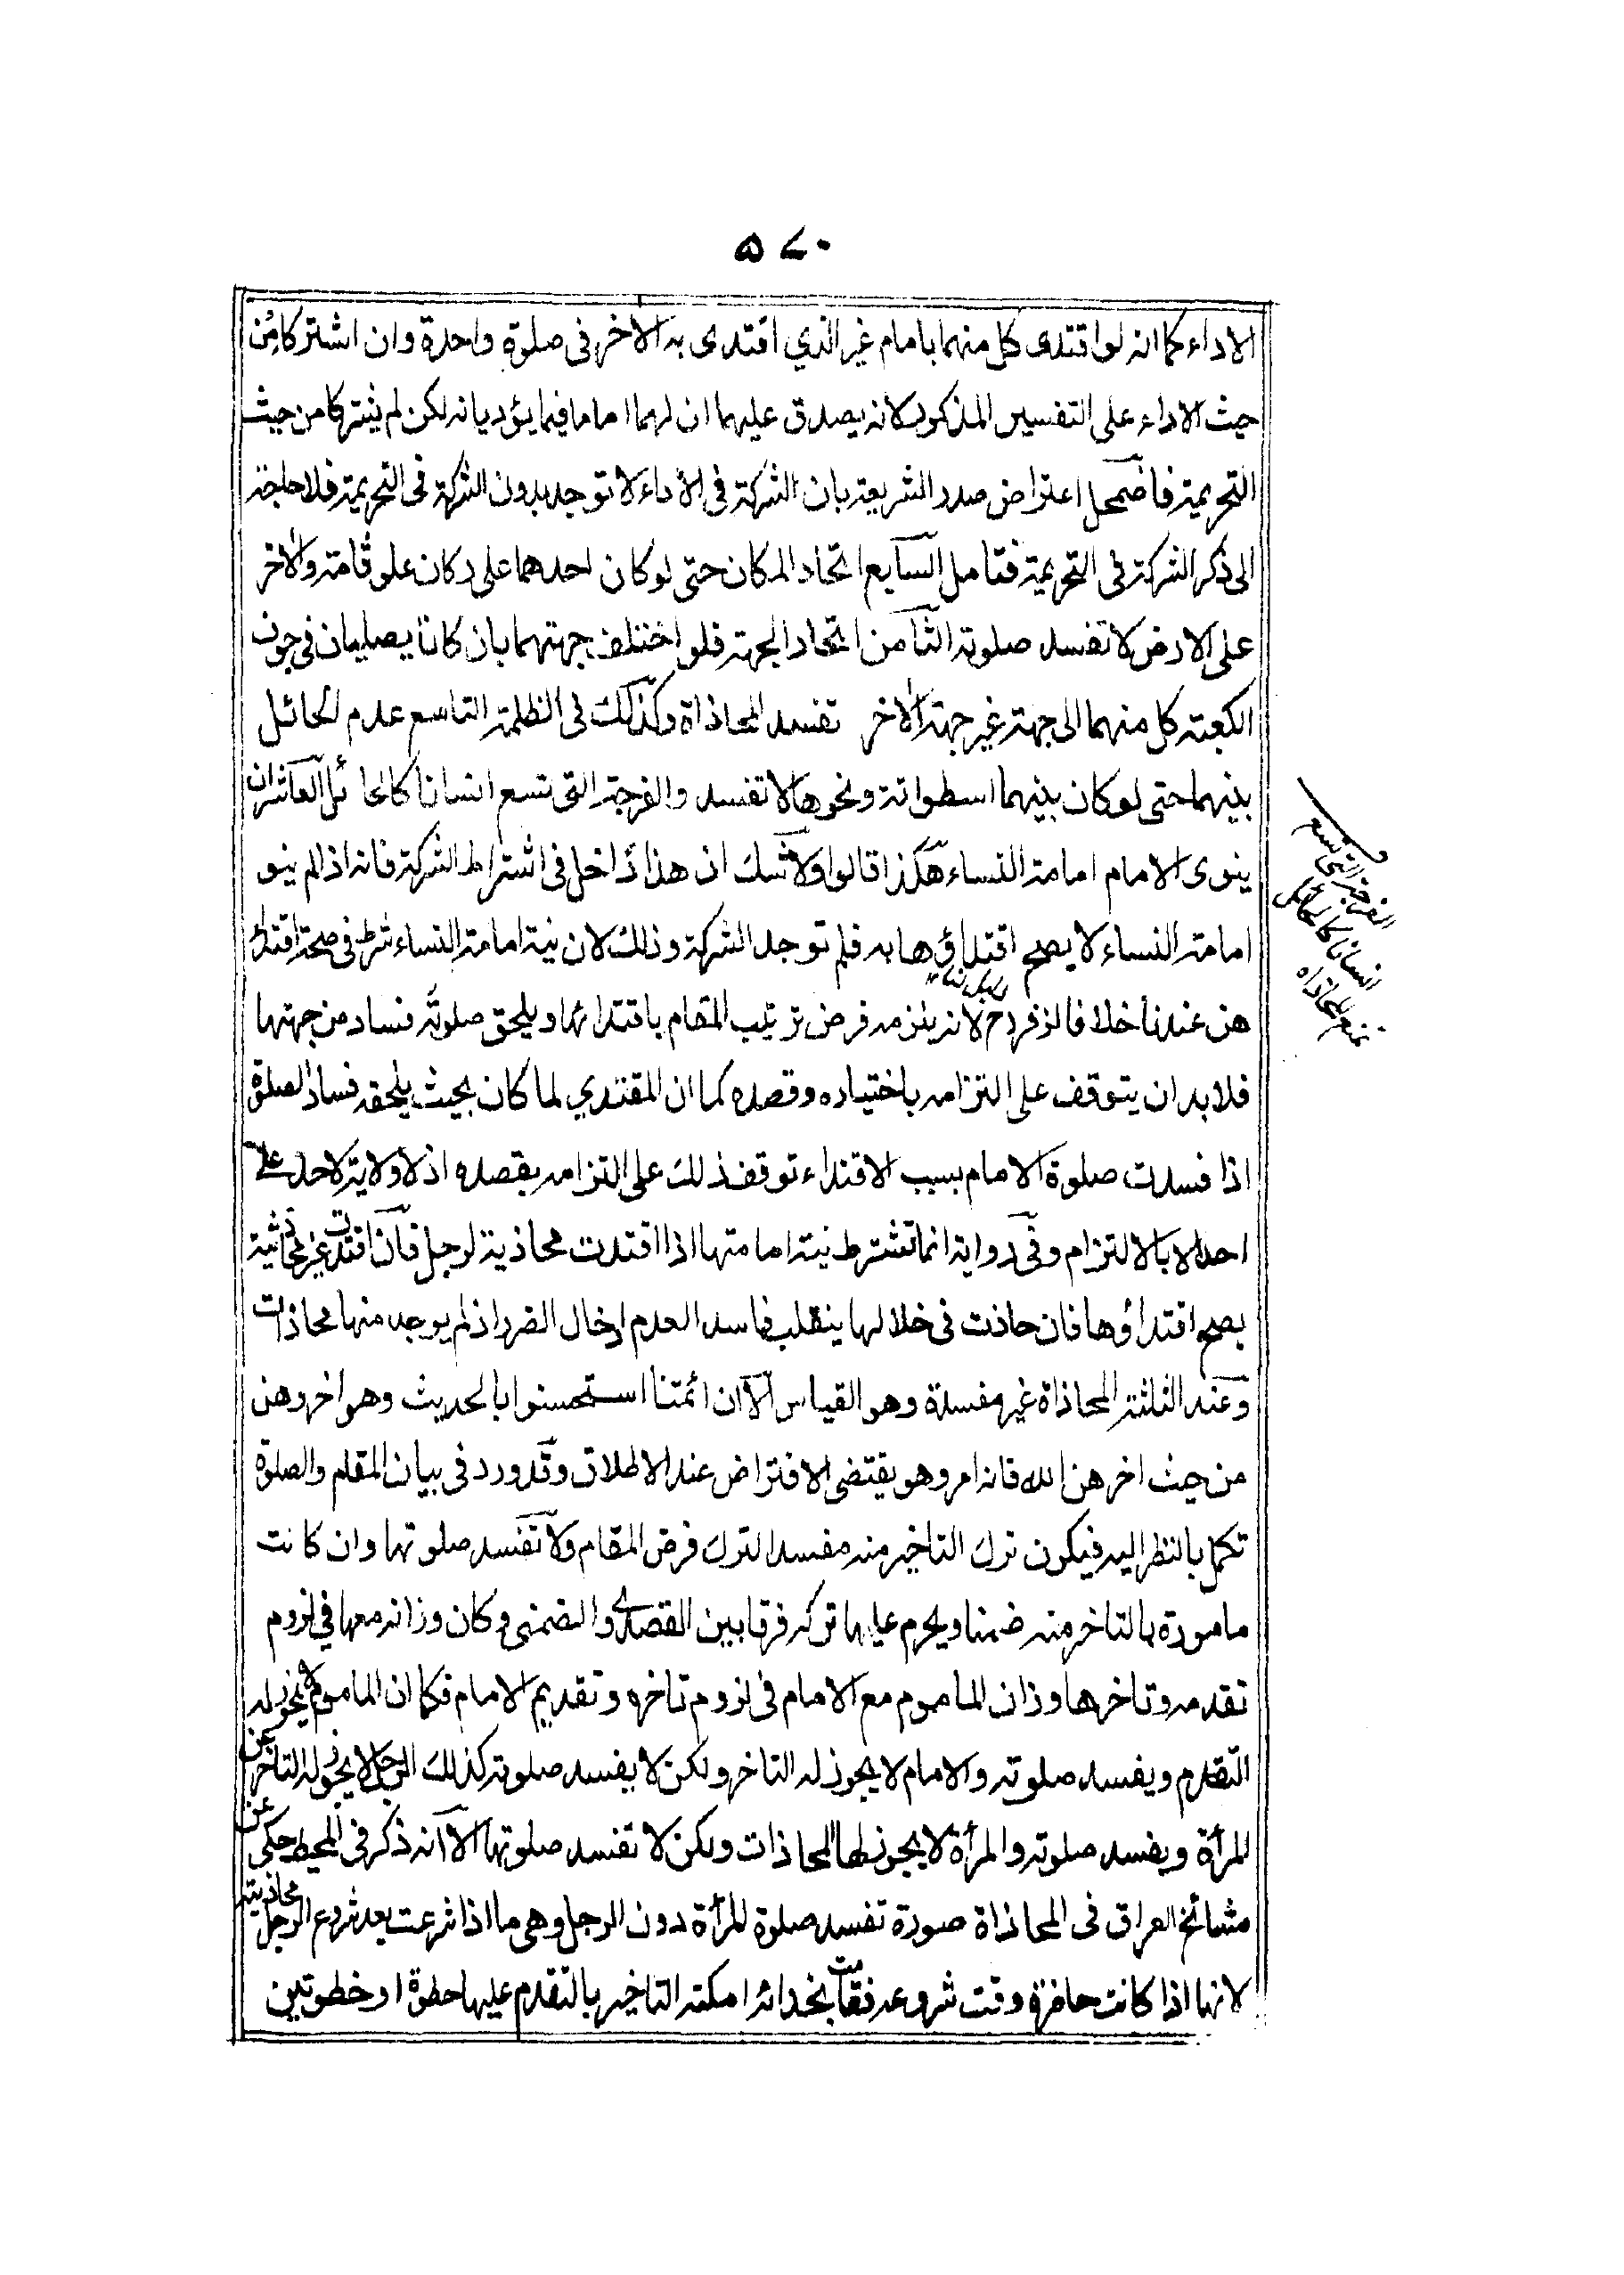 ٥٧٠
الاداء كما انه لو اقتدى كل منهما بامام غير الذي اقتدى به الاخر في صلوة واحدة وان اشتركا من
حيث الاداء على التفسير المذكور لانه يصدق عليهما ان لهما اماما فيما يؤديانه لكن لم يشتركا من حيث
التحريمة فاضمحل اعتراض صدر الشريعة بان الشركة في الاداء لا توجد بدون الشركة في التحريمة فلا حاجة
الى ذكر الشركة في التحريمة فتامل السابع اتحاد المكان حتى لو كان احدهما على دكان علو قامة والاخر
على الارض لا تفسد صلوته الثامن اتحاد الجهة فلو اختلف جهتهما بان كانا يصليان في جوف
الكعبة كل منهما الى جهة غير جهة الاخر تفسد المحاذاة وكذلك في الظلمة التاسع عدم الحائل
بينهما حتى لو كان بينهما اسطوانة ونحوها لا تفسد والفرجة التي تسع انسانا كالحائل العاشر ان
ينوى الامام امامة النساء هكذا قالوا ولا شك ان هذا داخل في اشتراط الشركة فانه اذا لم ينو
امامة النساء لا يصح اقتداؤها به فلم توجد الشركة وذلك لان نية امامة النساء شرط في صحة اقتدائ
هن عندنا خلافا لزفر رح لانه يلزمه فرض ترتيب المقام باقتدائها ويلحق صلوته فساد من جهتها
فلا بد ان يتوقف على التزامه باختياره وقصده كما ان المقتدي لما كان بحيث يلحقه فساد الصلوة
اذا فسدت صلوة الامام بسبب الاقتداء توقف ذلك على التزامه بقصده اذ لا ولاية لاحد على
احد الا بالالتزام وفي رواية انما تشترط نية امامتها اذا اقتدت محاذية لرجل فان اقتدت غير محاذية
يصح اقتداؤها فان حاذت في خلالها ينقلب فاسدا لعدم ادخال الضرر اذ لم يوجد منها محاذات
وعند الثلثة المحاذاة غير مفسدة وهو القياس الا ان ائمتنا استحسنوا بالحديث وهو اخروهن
من حيث اخرهن الله فانه امر وهو يقتضى الافتراض عند الاطلاق وقد ورد في بيان المقام والصلوة
تكمل بالنظر اليه فيكون ترك التاخير منه مفسدا لترك فرض المقام ولا تفسد صلوتها وان كانت
مامورة بالتاخر منه ضمنا ويحرم عليها تركه فرقا بين القصدي والضمني وكان وزانه معها في لزوم
تقدمه وتاخرها وزان الماموم مع الامام في لزوم تاخره وتقديم الامام فكما ان الماموم لا يجوز له
التقدم ويفسد صلوته والامام لا يجوز له التاخر ولكن لا يفسد صلوته كذلك الرجل لا يجوز له التاخر عن
المرأة ويفسد صلوته والمرأة لا يجوز لها المحاذات ولكن لا تفسد صلوتها الا انه ذكر في المحيط حكى عن
مشائخ العراق في المحاذاة صورة تفسد صلوة المرأة دون الرجل وهي ما اذا شرعت بعد شروع الرجل محاذية
لانها اذا كانت حاضرة وقت شروعه فقامت بحذائه امكنه التاخير بالتقدم عليها خطوة او خطوتين
الفرجة التي تسع
انسانا كالحائل
تمنع المحاذاه